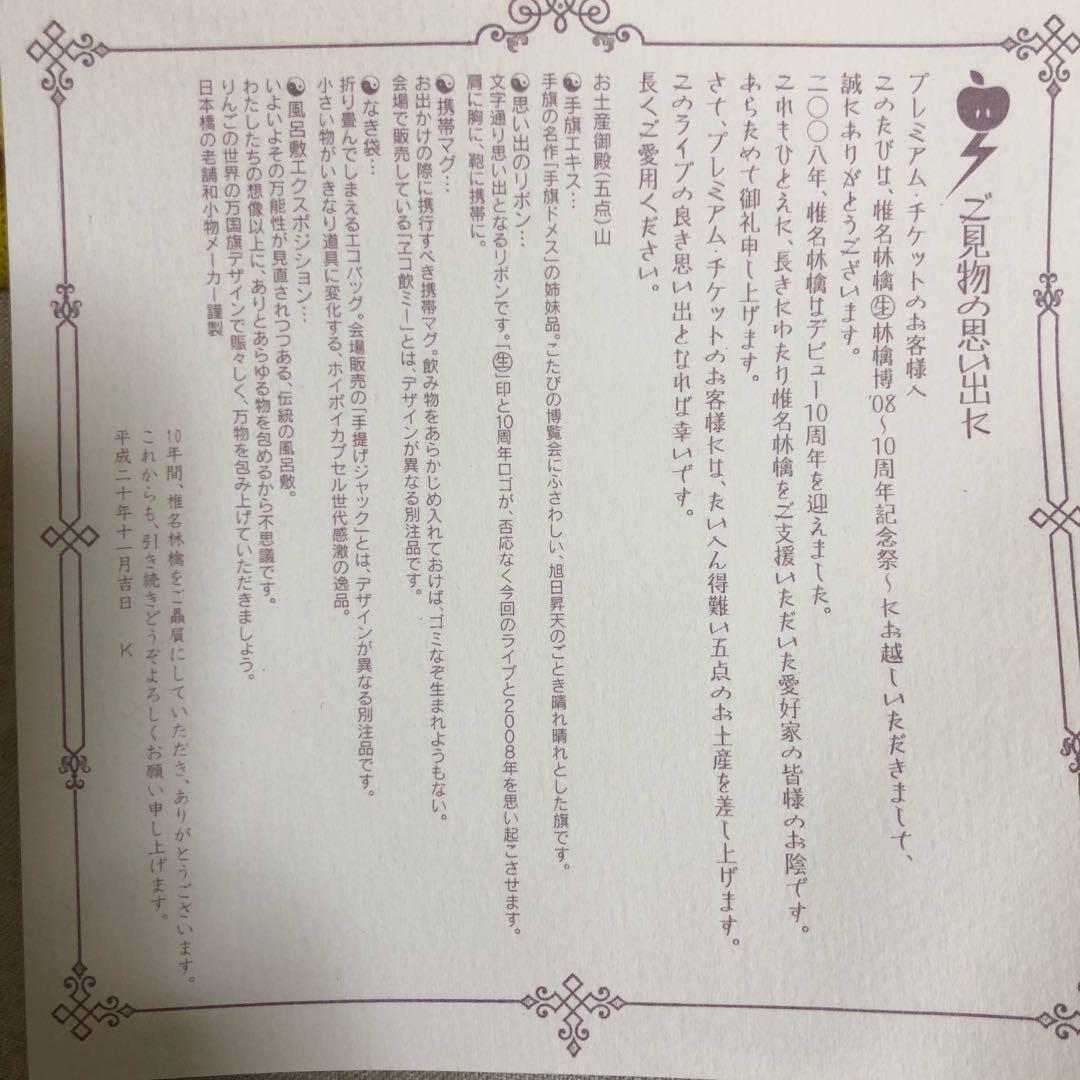 ご見物の思い出に
プレミアム・チケットのお客様へ
このたびは、椎名林檎㊤林檎博'08〜10周年記念祭〜にお越しいただきまして、
誠にありがとうございます。
二〇〇八年、椎名林檎はデビュー10周年を迎えました。
これもひとえに、長きにわたり椎名林檎をご支援いただいた愛好家の皆様のお陰です。
あらためて御礼申し上げます。
さて、プレミアム・チケットのお客様には、たいへん得難い五点のお土産を差し上げます。
このライブの良き思い出となれば幸いです。
長くご愛用ください。
お土産御殿(五点)山
☯手旗エキス…
手旗の名作「手旗ドメス」の姉妹品。こたびの博覧会にふさわしい、旭日昇天のごとき晴れ晴れとした旗です。
☯思い出のリボン…
文字通り思い出となるリボンです。「生」印と10周年ロゴが、否応なく今回のライブと2008年を思い起こさせます。
肩に胸に、鞄に携帯に。
☯携帯マグ…
お出かけの際に携行すべき携帯マグ。飲み物をあらかじめ入れておけば、ゴミなぞ生まれようもない。
会場で販売している「ヱコ飲ミー」とは、デザインが異なる別注品です。
☯なき袋…
折り畳んでしまえるエコバッグ。会場販売の「手提げジャック」とは、デザインが異なる別注品です。
小さい物がいきなり道具に変化する、ホイポイカプセル世代感激の逸品。
☯風呂敷エクスポジション…
いよいよその万能性が見直されつつある、伝統の風呂敷。
わたしたちの想像以上に、ありとあらゆる物を包めるから不思議です。
りんごの世界の万国旗デザインで賑々しく、万物を包み上げていただきましょう。
日本橋の老舗和小物メーカー謹製
10年間、椎名林檎をご贔屓にしていただき、ありがとうございます。
これからも、引き続きどうぞよろしくお願い申し上げます。
平成二十年十一月吉日 K